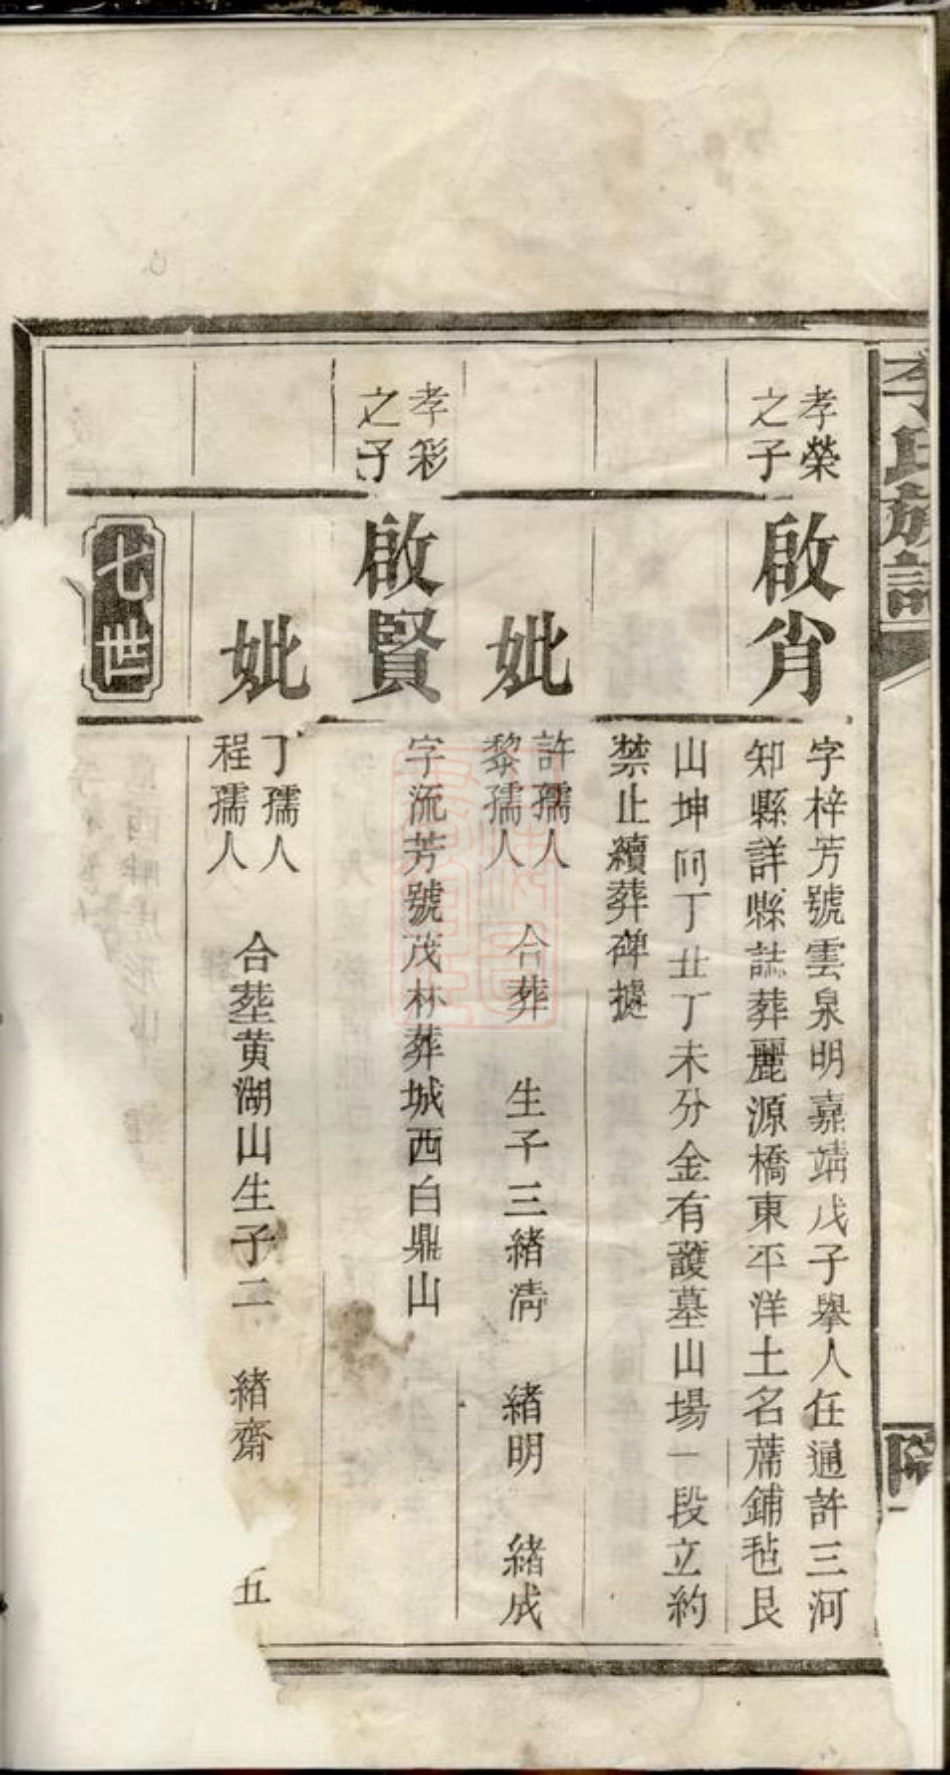 李氏族譜
孝榮
之子
啟肖
字梓芳號雲泉明嘉靖戊子舉人任通許三河
知縣詳縣誌葬麗源橋東平洋土名蓆鋪毡艮
山坤向丁丑丁未分金有護墓山場一段立約
禁止續葬碑據
妣
許孺人
黎孺人
合葬 生子三緒清 緒明 緒成
孝彩
之子
啟賢
字流芳號茂林葬城西白鼎山
妣
丁孺人
程孺人
合塟黄湖山生子二 緒齋
五
七世